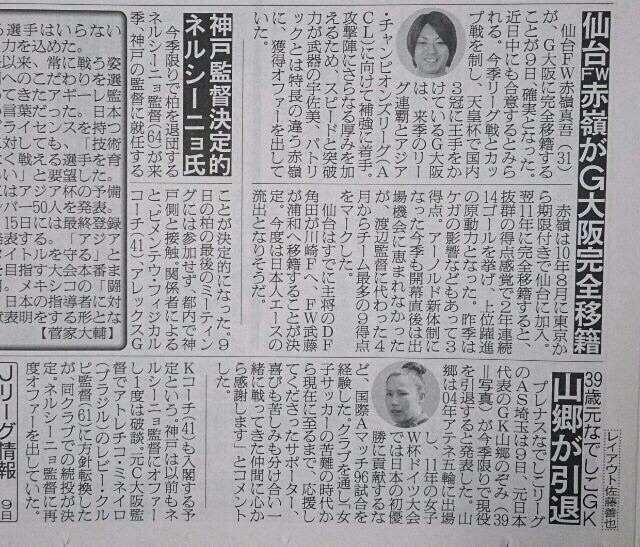 仙台FW赤嶺がG大阪完全移籍
仙台FW赤嶺真吾(31)
が、G大阪に完全移籍する
ことが9日、確実となった。
近日中にも合意するとみら
れる。今季リーグ戦とカッ
プ戦を制し、天皇杯で国内
3冠に王手をか
けているG大阪
は、来季のリー
グ連覇とアジア
チャンピオンズリーグ(A
CL)に向けて補強に着手。
攻撃陣にさらなる厚みを加
えるため、スピードと突破
力が武器の宇佐美、パトリ
ックとは特長の違う赤嶺
に、獲得オファーを出して
いた。
赤嶺は10年8月に東京か
ら期限付きで仙台に加入。
翌11年に完全移籍すると、
抜群の得点感覚で2年連続
14ゴールを挙げ、上位躍進
の原動力となった。昨季は
ケガの影響などもあって3
得点。アーノルド新体制に
なった今季も開幕直後は出
場機会に恵まれなかった
が、渡辺監督に代わった4
月からチーム最多の9得点
をマークした。
仙台はすでに主将のDF
角田が川崎Fへ、FW武藤
が浦和へ移籍することが決
定。今度は日本人エースの
流出となりそうだ。
神戸監督決定的
ネルシーニョ氏
今季限りで柏を退団する
ネルシーニョ監督(64)が来
季、神戸の監督に就任する
ことが決定的になった。9
日の柏の最後のミーティン
グには参加せず、都内で神
戸側と接触。関係者による
と、ピメンテウ・フィジカル
コーチ(41)アレックスG
Kコーチ(41)も入閣する予
定という。神戸は以前もネ
ルシーニョ監督にオファー
し1度は破談。元G大阪監
督でアトレチコ・ミネイロ
(ブラジル)のレビー・クル
ピ監督(61)に方針転換した
が、同クラブでの続投が決
定。ネルシーニョ監督に再
度オファーを出していた。
レイアウト 佐藤善也
39歳元なでしこGK
山郷が引退
プレナスなでしこリーグ
のAS埼玉は9日、元日本
代表のGK山郷のぞみ(39
=写真)が今季限りで現役
を引退すると発表した。山
郷は04年アテネ五輪に出場
し、11年の女子
W杯ドイツ大会
では日本の初優
勝に貢献するな
ど、国際Aマッチ96試合を
経験した。クラブを通し「女
子サッカーの苦難の時代か
ら現在に至るまで、応援し
てくださったサポーター、
喜びも苦しみも分け合い一
緒に戦ってきた仲間に心か
ら感謝します」とコメント
した。
選手はいらない
力を込めた。
以来、常に戦う姿
へのこだわりを選
てきたアギーレ監
い言葉だった。日本
ライセンスを持つ
に対しても、「技術
く戦える選手を育
い」と要望した。
はアジア杯の予備
バー50人を発表。
15日には最終登録
発表する。「アジア
タイトルを守る」と
を目指す大会本番ま
月。メキシコの「闘
日本の指導者に対
状表明をする形とな
【菅家大輔】
Jリーグ情報
9日